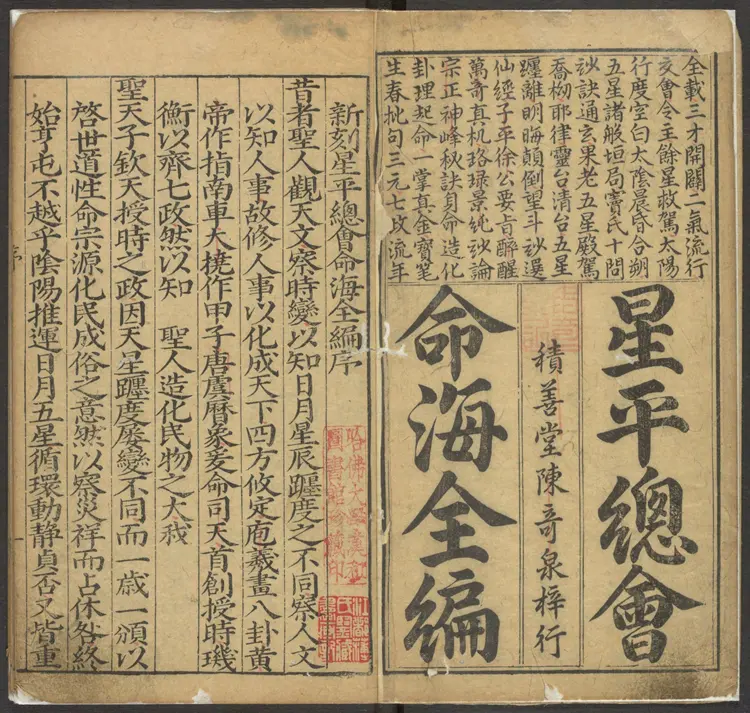 全載三才開闢二氣流行
交會令主餘星救駕太陽
行度空白太陰晨昏合朔
五星諸般垣局竇氏十問
玅訣通玄果老五星殿駕
喬拗耶律靈台清台五星
躔離明晦顛倒望斗玅選
仙經子平徐公要旨醉醒
萬奇真机珞琭景純玅論
宗正神峰秘訣貟命造化
卦理起命一掌真金寶笔
生春批句三元七政流年
星平總會
積善堂陳奇泉梓行
命海全編
新刻星平總會命海全編序
昔者聖人觀天文察時變以知日月星辰躔度之不同察人文
以知人事故修人事以化成天下四方攸定庖羲畫八卦黃
帝作指南車大撓作甲子唐虞曆象爰命司天首創授時璣
衡以齊七政然以知 聖人造化民物之大哉
聖天子欽天授時之政因天星躔度屢變不同而一歲一頒以
啓世道性命宗源化民成俗之意然以察災祥而占休咎終
始亨屯不越乎陰陽推運日月五星循環動靜貞否又皆重
序
一
哈佛大學漢和
圖書館珍藏印